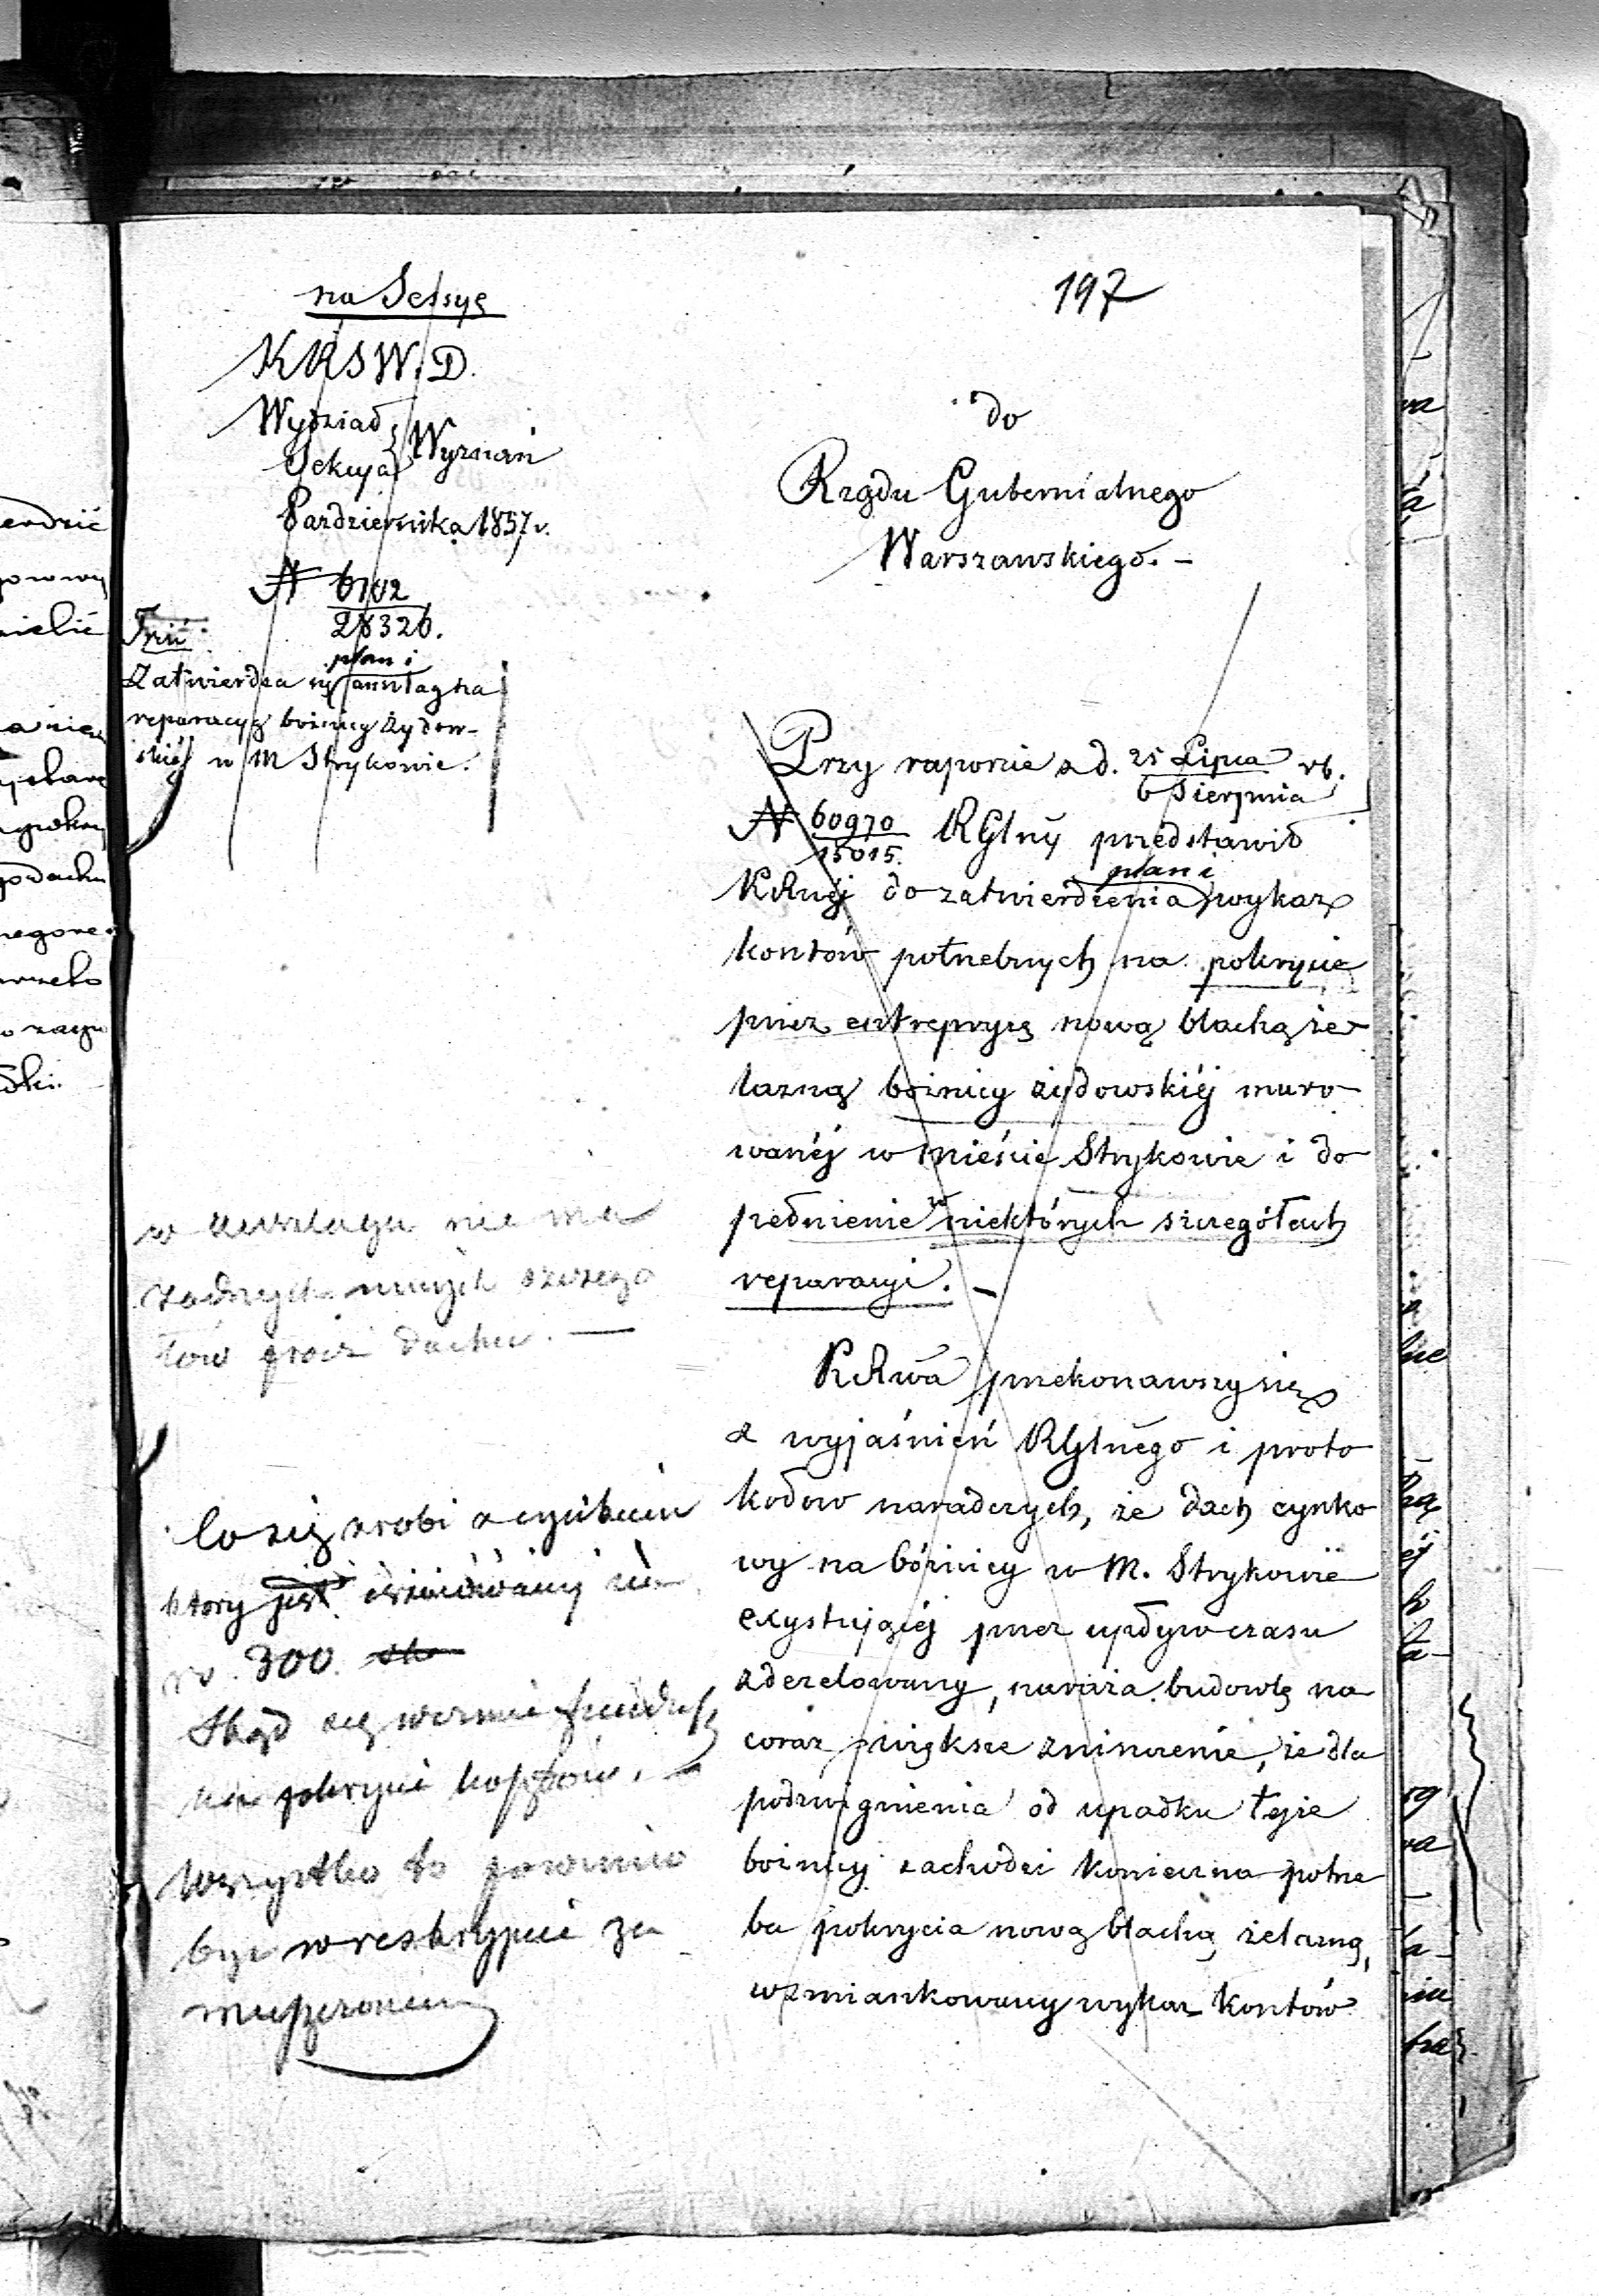 197
na Sessyę
KRSW.D.
Wydział
Sekcya Wyznań
Października 1857 r.
N 6102
28326.
Treść
plan i
Zatwierdza się anszlag na
reparacyę bożnicy żydow-
skiéj w M Strykowie.
do
Rządu Gubernialnego
Warszawskiego. –
Przy raporcie z d. 25 Lipca rb.
6 Sierpnia
N 60970 RGlny przedstawił
15015.
plan i
KRwéj do zatwierdzenia wykaz
kosztów potrzebnych na pokrycie
przez entrepryzę nową blachą że-
lazną bożnicy żydowskiéj muro-
wanéj w mieście Strykowie i do
pełnienie w niektórych szczegółach
reparacyi. –
KRwa przekonawszy się
z wyjaśnień RGlnego i proto
kołow naradczych, że dach cynko
wy na bóżnicy w M. Strykowie
exystujący przez upływ czasu
zdezelowany, naraża budowlę na
coraz większe zniszczenie, że dla
podzwignienia od upadku tejże
bożnicy zachodzi konieczna potrze
ba pokrycia nową blachą żelazną,
wzmiankowany wykaz kosztów
w anszlagu nie ma
żadnych innych szczegó
łów prócz dachu. —
Co się zrobi z cynkiem
ktory jest na
rs. 300.
Skąd się wezmie fundusz
na pokrycie kosztów. –
Wszystko to powinno
być w reskrypcie za
mieszczonem